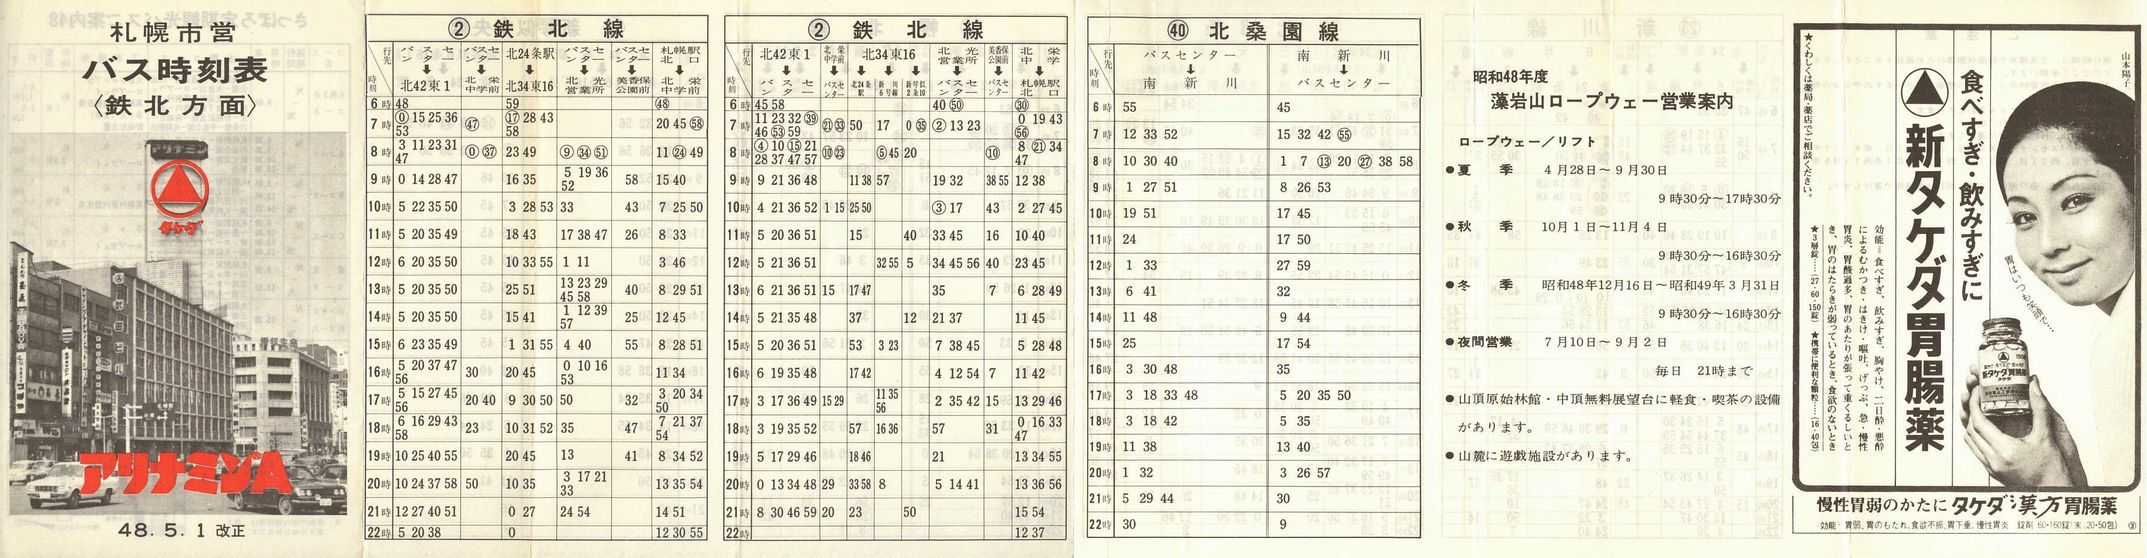 札幌市営
バス時刻表
〈鉄北方面〉
アリナミン
タケダ
アリナミンA
48. 5. 1 改正
② 鉄北線
行先 時刻
バスセンター ↓ 北42東1
バスセンター ↓ 北栄中学前
北24条駅 ↓ 北34東16
バスセンター ↓ 北光営業所
バスセンター ↓ 美香保公園前
札幌駅北口 ↓ 北栄中学前
6時 48 59 ㊽
7時 ⓪ 15 25 36 53 ㊼ ⑰ 28 43 58 20 45 (58)
8時 3 11 23 31 47 ⓪ ㊲ 23 49 ⑨ ㉞ (51) 11 ㉔ 49
9時 0 14 28 47 16 35 5 19 36 52 58 15 40
10時 5 22 35 50 3 28 53 33 43 7 25 50
11時 5 20 35 49 18 43 17 38 47 26 8 33
12時 6 20 35 50 10 33 55 1 11 3 46
13時 5 20 35 50 25 51 13 23 29 45 58 40 8 29 51
14時 5 20 35 50 15 41 1 12 39 57 25 12 45
15時 6 23 35 49 1 31 55 4 40 55 8 28 51
16時 5 20 37 47 56 30 20 45 0 10 16 53 11 34
17時 5 15 27 45 56 20 40 9 30 50 50 32 3 20 34 50
18時 6 16 29 43 58 23 10 31 52 35 47 7 21 37 54
19時 10 25 40 55 20 45 13 41 8 34 52
20時 10 24 37 58 50 10 35 3 17 21 33 13 35 54
21時 12 27 40 51 0 27 24 54 14 51
22時 5 20 38 0 12 30 55
② 鉄北線
行先 時刻
北42東1 ↓ バスセンター
北栄中学前 ↓ バスセンター
北34東16 ↓ 北24条駅 新川線6号 新号以2条10
北光営業所 ↓ バスセンター
美香保公園前 ↓ バスセンター
北栄中学 ↓ 札幌駅北口
6時 45 58 40 ㊿ ㉚
7時 11 23 32 ㊴ 46 (53) 59 ㉑ ㉝ 50 17 0 ㉟ ② 13 23 0 19 43 (56)
8時 ④ 10 ⑮ 21 28 37 47 57 ⑩ ㉓ ⑤ 45 20 ⑩ 8 ㉑ 34 47
9時 9 21 36 48 11 38 57 19 32 38 55 12 38
10時 4 21 36 52 1 15 25 50 ③ 17 43 2 27 45
11時 5 20 36 51 15 40 33 45 16 10 40
12時 5 21 36 51 32 55 5 34 45 56 40 23 45
13時 6 21 36 51 15 17 47 35 7 6 28 49
14時 5 21 35 48 37 12 21 37 11 45
15時 5 20 36 51 53 3 23 7 38 45 5 28 48
16時 6 19 35 48 17 42 4 12 54 7 11 42
17時 3 17 36 49 15 29 11 35 56 2 35 42 15 13 29 46
18時 3 19 35 52 57 16 36 57 31 0 16 33 47
19時 5 17 29 46 18 46 21 13 34 55
20時 0 13 34 48 29 33 58 8 5 14 41 13 36 56
21時 8 30 46 59 20 23 50 15 54
22時 12 37
㊵ 北桑園線
行先 時刻
バスセンター ↓ 南新川
南新川 ↓ バスセンター
6時 55 45
7時 12 33 52 15 32 42 (55)
8時 10 30 40 1 7 ⑬ 20 ㉗ 38 58
9時 1 27 51 8 26 53
10時 19 51 17 45
11時 24 17 50
12時 1 33 27 59
13時 6 41 32
14時 11 48 9 44
15時 25 17 54
16時 3 30 48 35
17時 3 18 33 48 5 20 35 50
18時 3 18 42 5 35
19時 11 38 13 40
20時 1 32 3 26 57
21時 5 29 44 30
22時 30 9
昭和48年度
藻岩山ロープウェー営業案内
ロープウェー／リフト
●夏季 4月28日〜9月30日
9時30分〜17時30分
●秋季 10月1日〜11月4日
9時30分〜16時30分
●冬季 昭和48年12月16日〜昭和49年3月31日
9時30分〜16時30分
●夜間営業 7月10日〜9月2日
毎日 21時まで
●山頂原始林館・中頂無料展望台に軽食・喫茶の設備
があります。
●山麓に遊戯施設があります。
山本陽子
食べすぎ・飲みすぎに
新タケダ胃腸薬
胃はいつも笑顔で…
効能＝食べすぎ、飲みすぎ、胸やけ、二日酔・悪酔
によるむかつき・はきけ・嘔吐、げっぷ、急・慢性
胃炎、胃酸過多、胃のあたりが張って重くるしいと
き、胃のはたらきが弱っているとき、食欲のないとき
★3層錠……(27・60・150錠) ★携帯に便利な顆粒……(16・40包)
★くわしくは薬局・薬店でご相談ください。
新タケダ胃腸薬
慢性胃弱のかたに タケダ漢方胃腸薬
効能：胃弱、胃のもたれ、食欲不振、胃下垂、慢性胃炎 錠剤 60・160錠(末、20・50包) ③